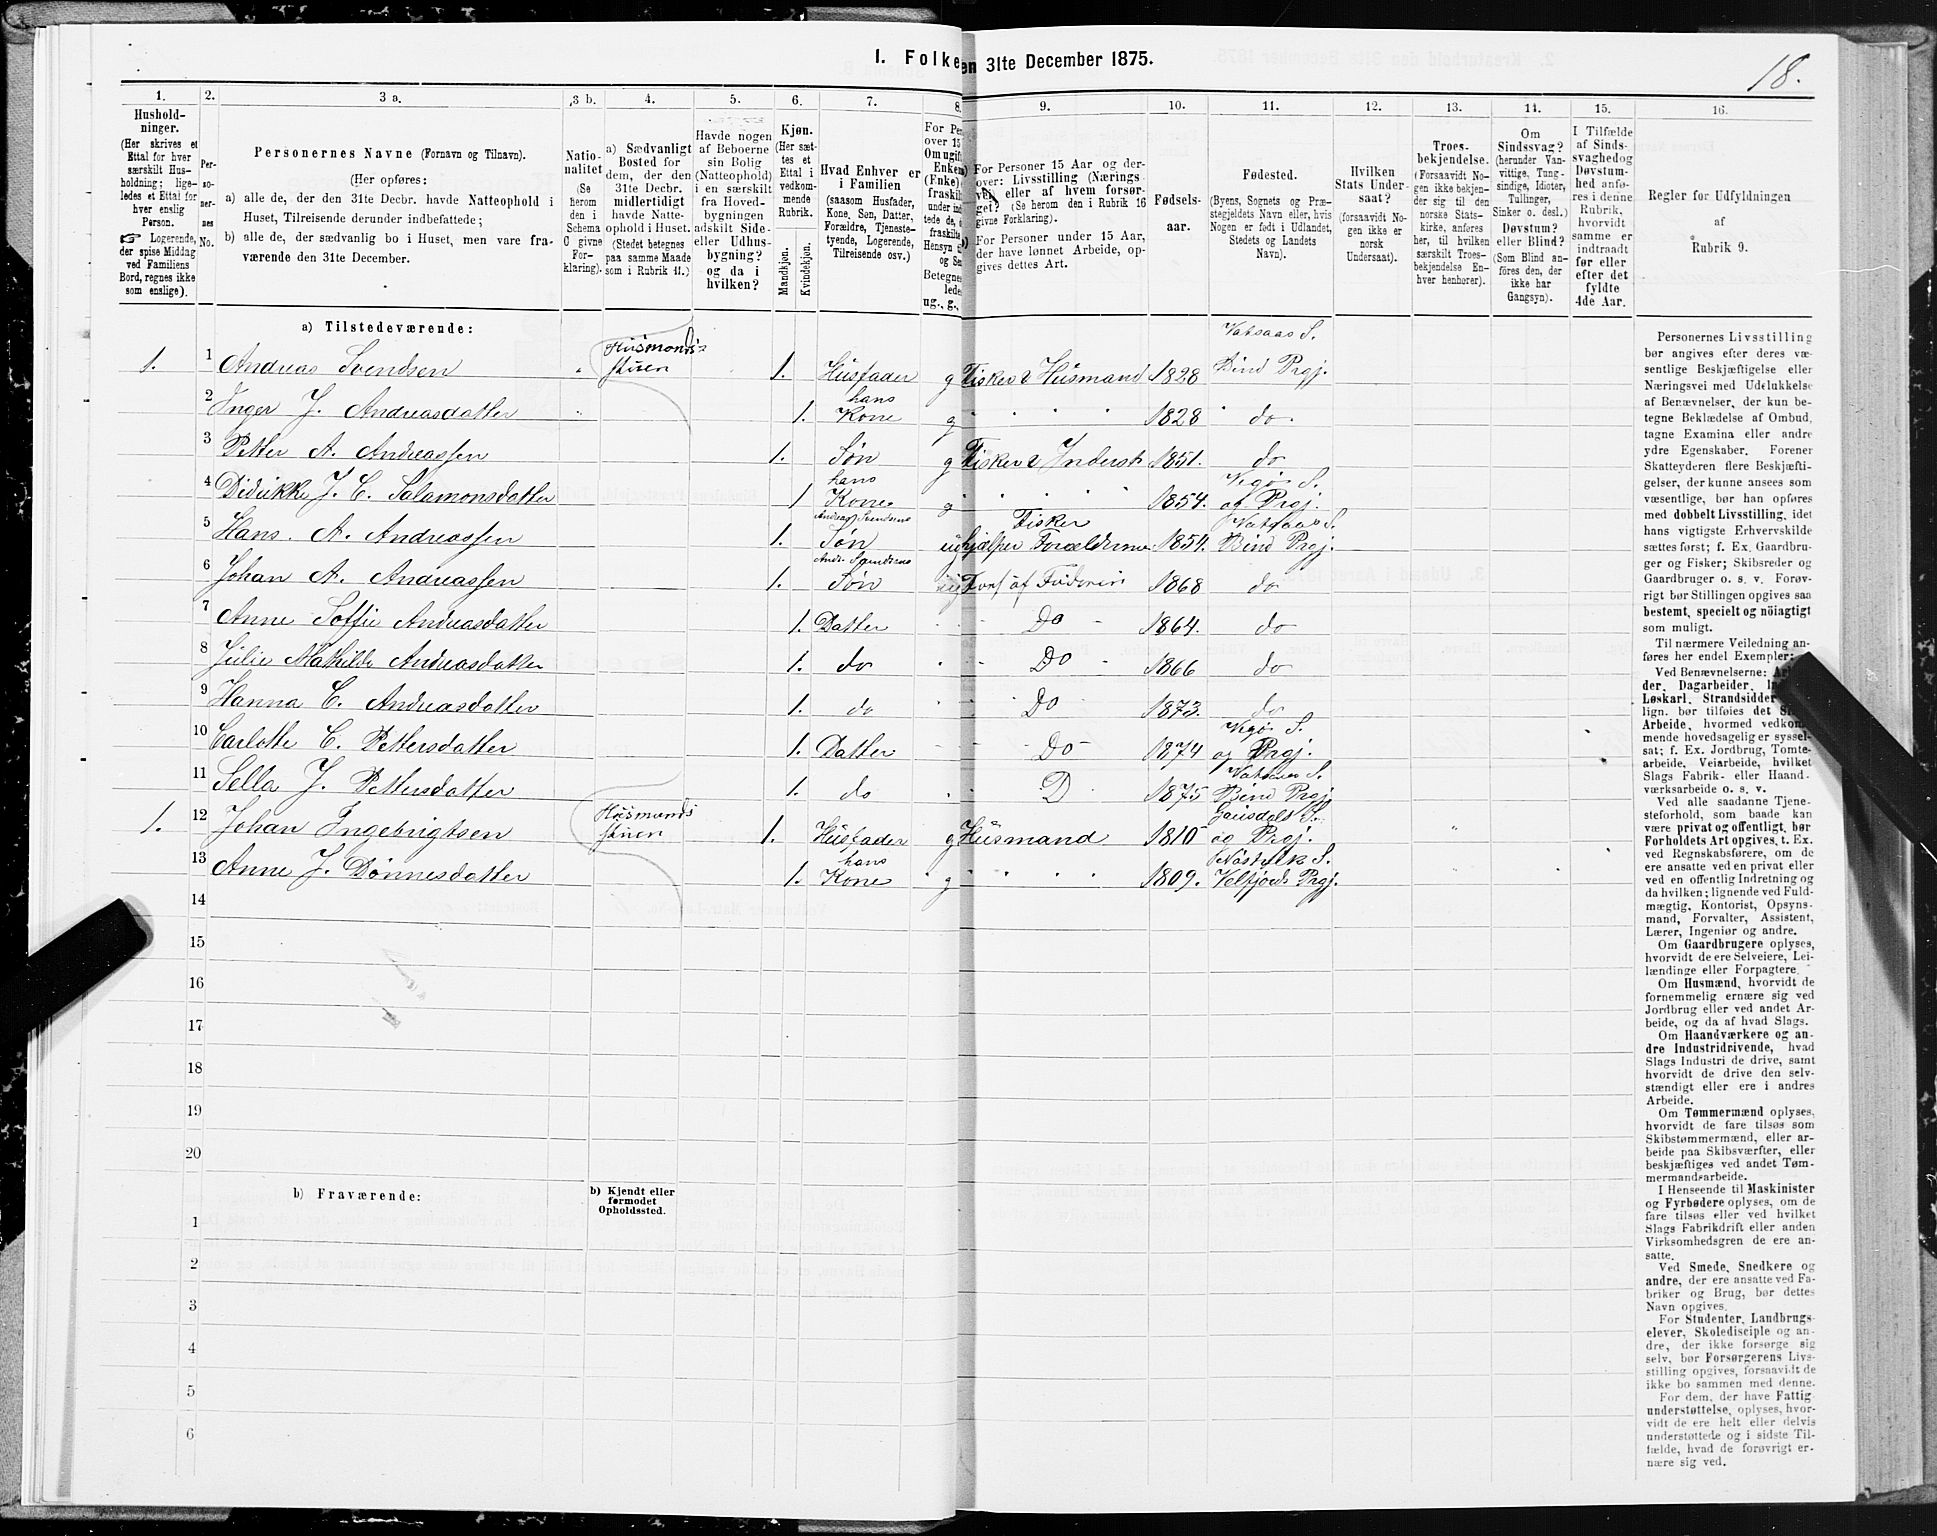 1. Folke en 31te December 1875.
18.
1. 2. 3 a. 3 b. 4. 5. 6. 7. 8. 9. 10. 11. 12. 13. 14. 15. 16.
Hushold-
ninger.
(Her skrives et
Ettal for hver
særskilt Hus-
holdning; lige-
ledes et Ettal for
hver enslig
Person.
☞ Logerende,
der spise Middag
ved Familiens
Bord, regnes ikke
som enslige).
Per-
so-
ner-
nes
No.
Personernes Navne (Fornavn og Tilnavn).
(Her opføres:
a) alle de, der den 31te Decbr. havde Natteophold i
Huset, Tilreisende derunder indbefattede;
b) alle de, der sædvanlig bo i Huset, men vare fra-
værende den 31te December.
Natio-
nalitet
(Se
herom
den i
Schema
C givne
For-
klaring).
a) Sædvanligt
Bosted for
dem, der den
31te Decbr.
midlertidigt
havde Natte-
ophold i Huset.
(Stedet betegnes
paa samme Maade
som i Rubrik 11.)
Havde nogen
af Beboerne
sin Bolig
(Natteophold)
i en særskilt
fra Hoved-
bygningen
adskilt Side-
eller Udhus-
bygning?
og da i
hvilken?
Kjøn.
(Her sæt-
tes et
Ettal i
vedkom-
mende
Rubrik.
Mandkjøn.
Kvindekjøn.
Hvad Enhver er
i Familien
(saasom Husfader,
Kone, Søn, Datter,
Forældre, Tjeneste-
tyende, Logerende,
Tilreisende osv.)
For Per
over 15
Om ugift
Enkem
(Enke)
fraskilt
under ind
tede de,
fraskilte
Hensyn
og Se
Betegnes
lede
ug., g.,
For Personer 15 Aar og der-
over: Livsstilling (Nærings-
vei) eller af hvem forsør-
get? (Se herom den i Rubrik 16
givne Forklaring).
For Personer under 15 Aar,
der have lønnet Arbeide, op-
gives dettes Art.
Fødsels-
aar.
Fødested.
(Byens, Sognets og Præ-
stegjeldets Navn eller, hvis
Nogen er født i Udlandet,
Stedets og Landets
Navn).
Hvilken
Stats Under-
saat?
(forsaavidt No-
gen ikke er
norsk
Undersaat).
Troes-
bekjendelse.
(Forsaavidt No-
gen ikke bekjen-
der sig til den
norske Stats-
kirke, anføres
her, til hvilken
særskilt Troes-
bekjendelse En-
hver henhører).
Om
Sindssvag?
(herunder Van-
vittige, Tung-
sindige, Idioter,
Tullinger,
Sinker o. desl.)
Døvstum?
eller Blind?
(Som Blind an-
føres den, der
ikke har
Gangsyn).
I Tilfælde
af Sinds-
svaghedog
Døvstum-
hed anfø-
res i denne
Rubrik,
hvorvidt
samme er
indtraadt
før eller
efter det
fyldte
4de Aar.
Regler for Udfyldningen
af
Rubrik 9.
a) Tilstedeværende:
1. 1 Andreas Svendsen Husmands- stuen 1. Husfader g Fisker & Husmand 1828 Vatsaas S. Bind Prgj.
2 Inger J. Andreasdatter 1. hans Kone g " " " " 1828 do.
3 Petter A. Andreassen 1. Søn g Fisker & Inderst 1851. do
4 Didrikke J. C. Salamonsdatter 1 hans Kone g " " " " 1854. Vegø S. og Prgj.
5 Hans A. Andreassen 1. Andreas Svendsens Søn ug Fisker hjælper Forældrene 1854. Vatsaas S. Bind Prgj.
6 Johan A. Andreassen 1. Andr. Svendsens Søn ug Fors. af Faderen 1868 do
7 Anne Soffie Andreasdatter 1. Datter Do 1864. do
8 Julie Mathilde Andreasdatter 1. do Do 1866 do
9 Hanna C. Andreasdatter 1. do Do 1873. do
10 Carlotte C. Pettersdatter 1. Datter Do 1874 Vegø S. og Prgj.
11 Sella J. Pettersdatter 1. do D 1875 Vatsaas S. Bind Prgj
1. 12 Johan Ingebrigtsen Husmands stuen 1. Husfader g Husmand 1810 og Prgj.
13 Anne J. Dønnesdatter 1. hans Kone g " " " 1809. S. Velfjords Prgj.
14
15
16
17
18
19
20
b) Fraværende:
b) Kjendt eller
formodet
Opholdssted.
1
2
3
4
5
6
Personernes Livsstilling
bør angives efter deres væ-
sentlige Beskjæftigelse eller
Næringsvei med Udelukkelse
af Benævnelser, der kun be-
tegne Beklædelse af Ombud,
tagne Examina eller andre
ydre Egenskaber. Forener
Skatteyderen flere Beskjæfti-
gelser, der kunne ansees som
væsentlige, bør han opføres
med dobbelt Livsstilling, idet
hans vigtigste Erhvervskilde
sættes først; f. Ex. Gaardbru-
ger og Fisker; Skibsreder og
Gaardbruger o. s. v. Forøv-
rigt bør Stillingen opgives saa
bestemt, specielt og nöiagtigt
som muligt.
Til nærmere Veiledning an-
føres her endel Exempler:
Ved Benævnelserne:
der, Dagarbeider,
Løskarl, Strandsidder
lign. bør tilføies det
Arbeide, hvormed vedkom-
mende hovedsagelig er syssel-
sat; f. Ex. Jordbrug, Tomte-
arbeide, Veiarbeide, hvilket
Slags Fabrik- eller Haand-
værksarbeide o. s. v.
Ved alle saadanne Tjene-
steforhold, som baade kan
være privat og offentligt, bør
Forholdets Art opgives, t. Ex.
ved Regnskabsførere, om de
ere ansatte ved en privat eller
ved en offentlig Indretning og
da hvilken; lignende ved Fuld-
mægtig, Kontorist, Opsyns-
mand, Forvalter, Assistent,
Lærer, Ingeniør og andre.
Om Gaardbrugere oplyses,
hvorvidt de ere Selveiere, Lei-
lændinge eller Forpagtere.
Om Husmænd, hvorvidt de
fornemmelig ernære sig ved
Jordbrug eller ved andet Ar-
beide, og da af hvad Slags.
Om Haandværkere og an-
dre Industridrivende, hvad
Slags Industri de drive, samt
hvorvidt de drive den selv-
stændigt eller ere i andres
Arbeide.
Om Tømmermænd oplyses,
hvorvidt de fare tilsøs som
Skibstømmermænd, eller ar-
beide paa Skibsværfter, eller
beskjæftiges ved andet Tøm-
mermandsarbeide.
I Henseende til Maskinister
og Fyrbødere oplyses, om de
fare tilsøs eller ved hvilket
Slags Fabrikdrift eller anden
Virksomhedsgren de ere an-
satte.
Ved Smede, Snedkere og
andre, der ere ansatte ved Fa-
briker og Brug, bør dettes
Navn opgives.
For Studenter, Landbrugs-
elever, Skoledisciple og an-
dre, der ikke forsørge sig
selv, bør Forsørgerens Livs-
stilling opgives, forsaavidt de
ikke bo sammen med denne.
For dem, der have Fattig-
understøttelse, oplyses, hvor-
vidt de ere helt eller delvis
understøttede og i sidste Til-
fælde, hvad de forøvrigt er-
nære sig ved.